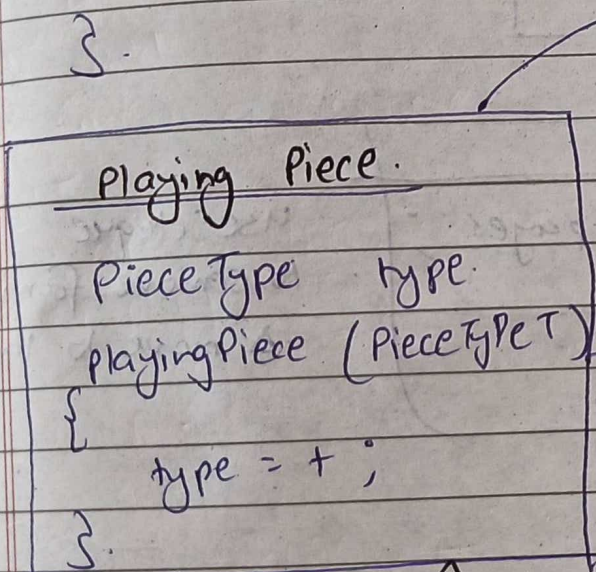 }.
Playing Piece.
PieceType type.
PlayingPiece (PieceType T)
{
type = t ;
}.